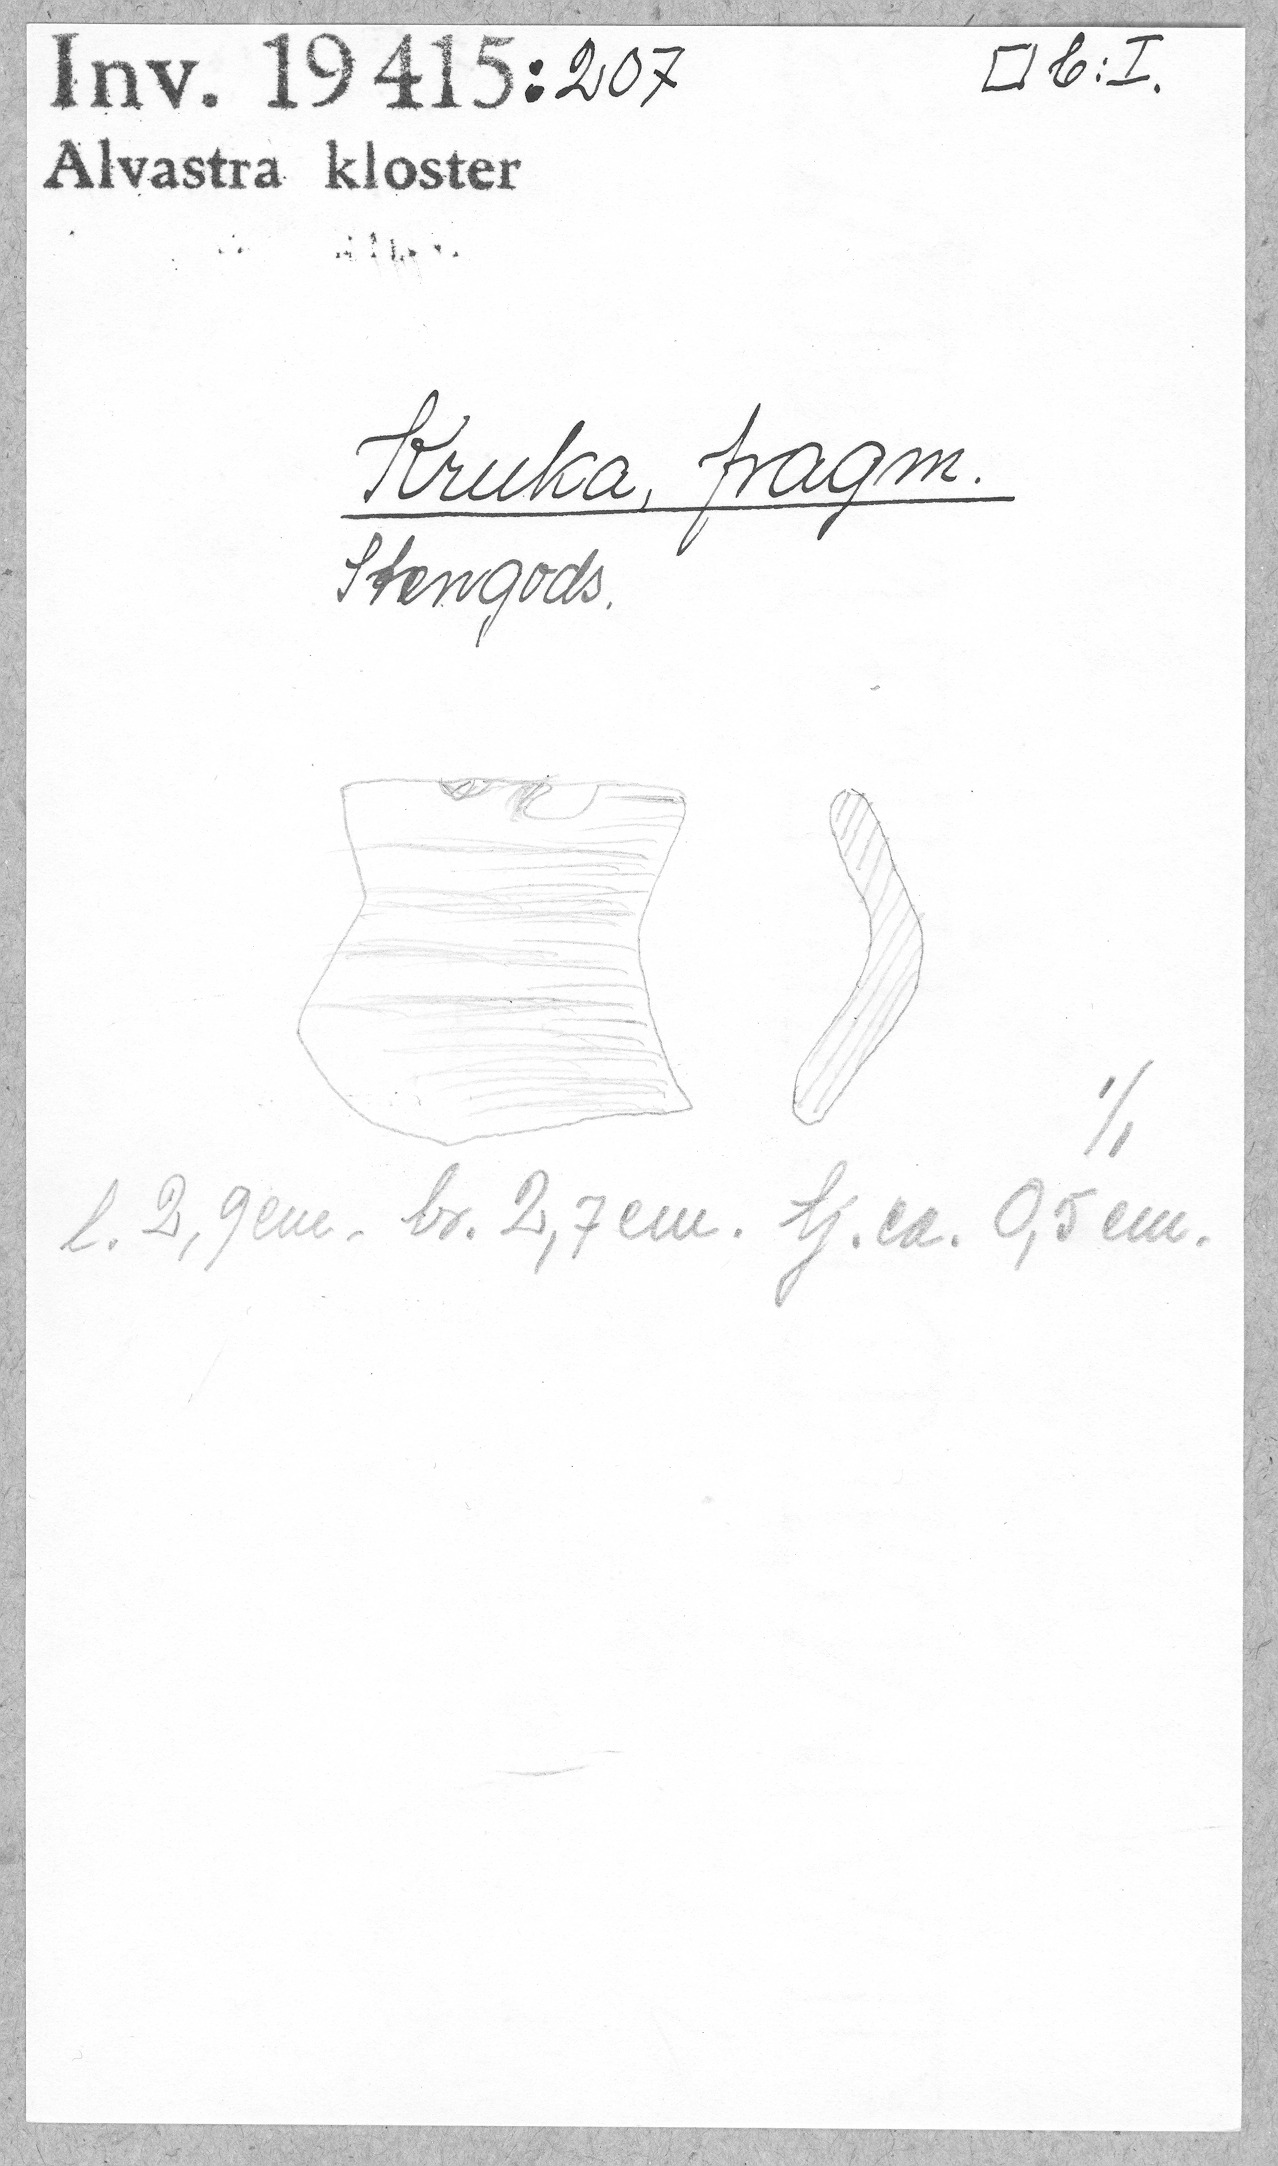 Inv. 19 415:207 □ b:I.
Alvastra kloster
Kruka, fragm.
Stengods.
1/1
l. 2,9 cm. br. 2,7 cm. tj. ca. 0,5 cm.